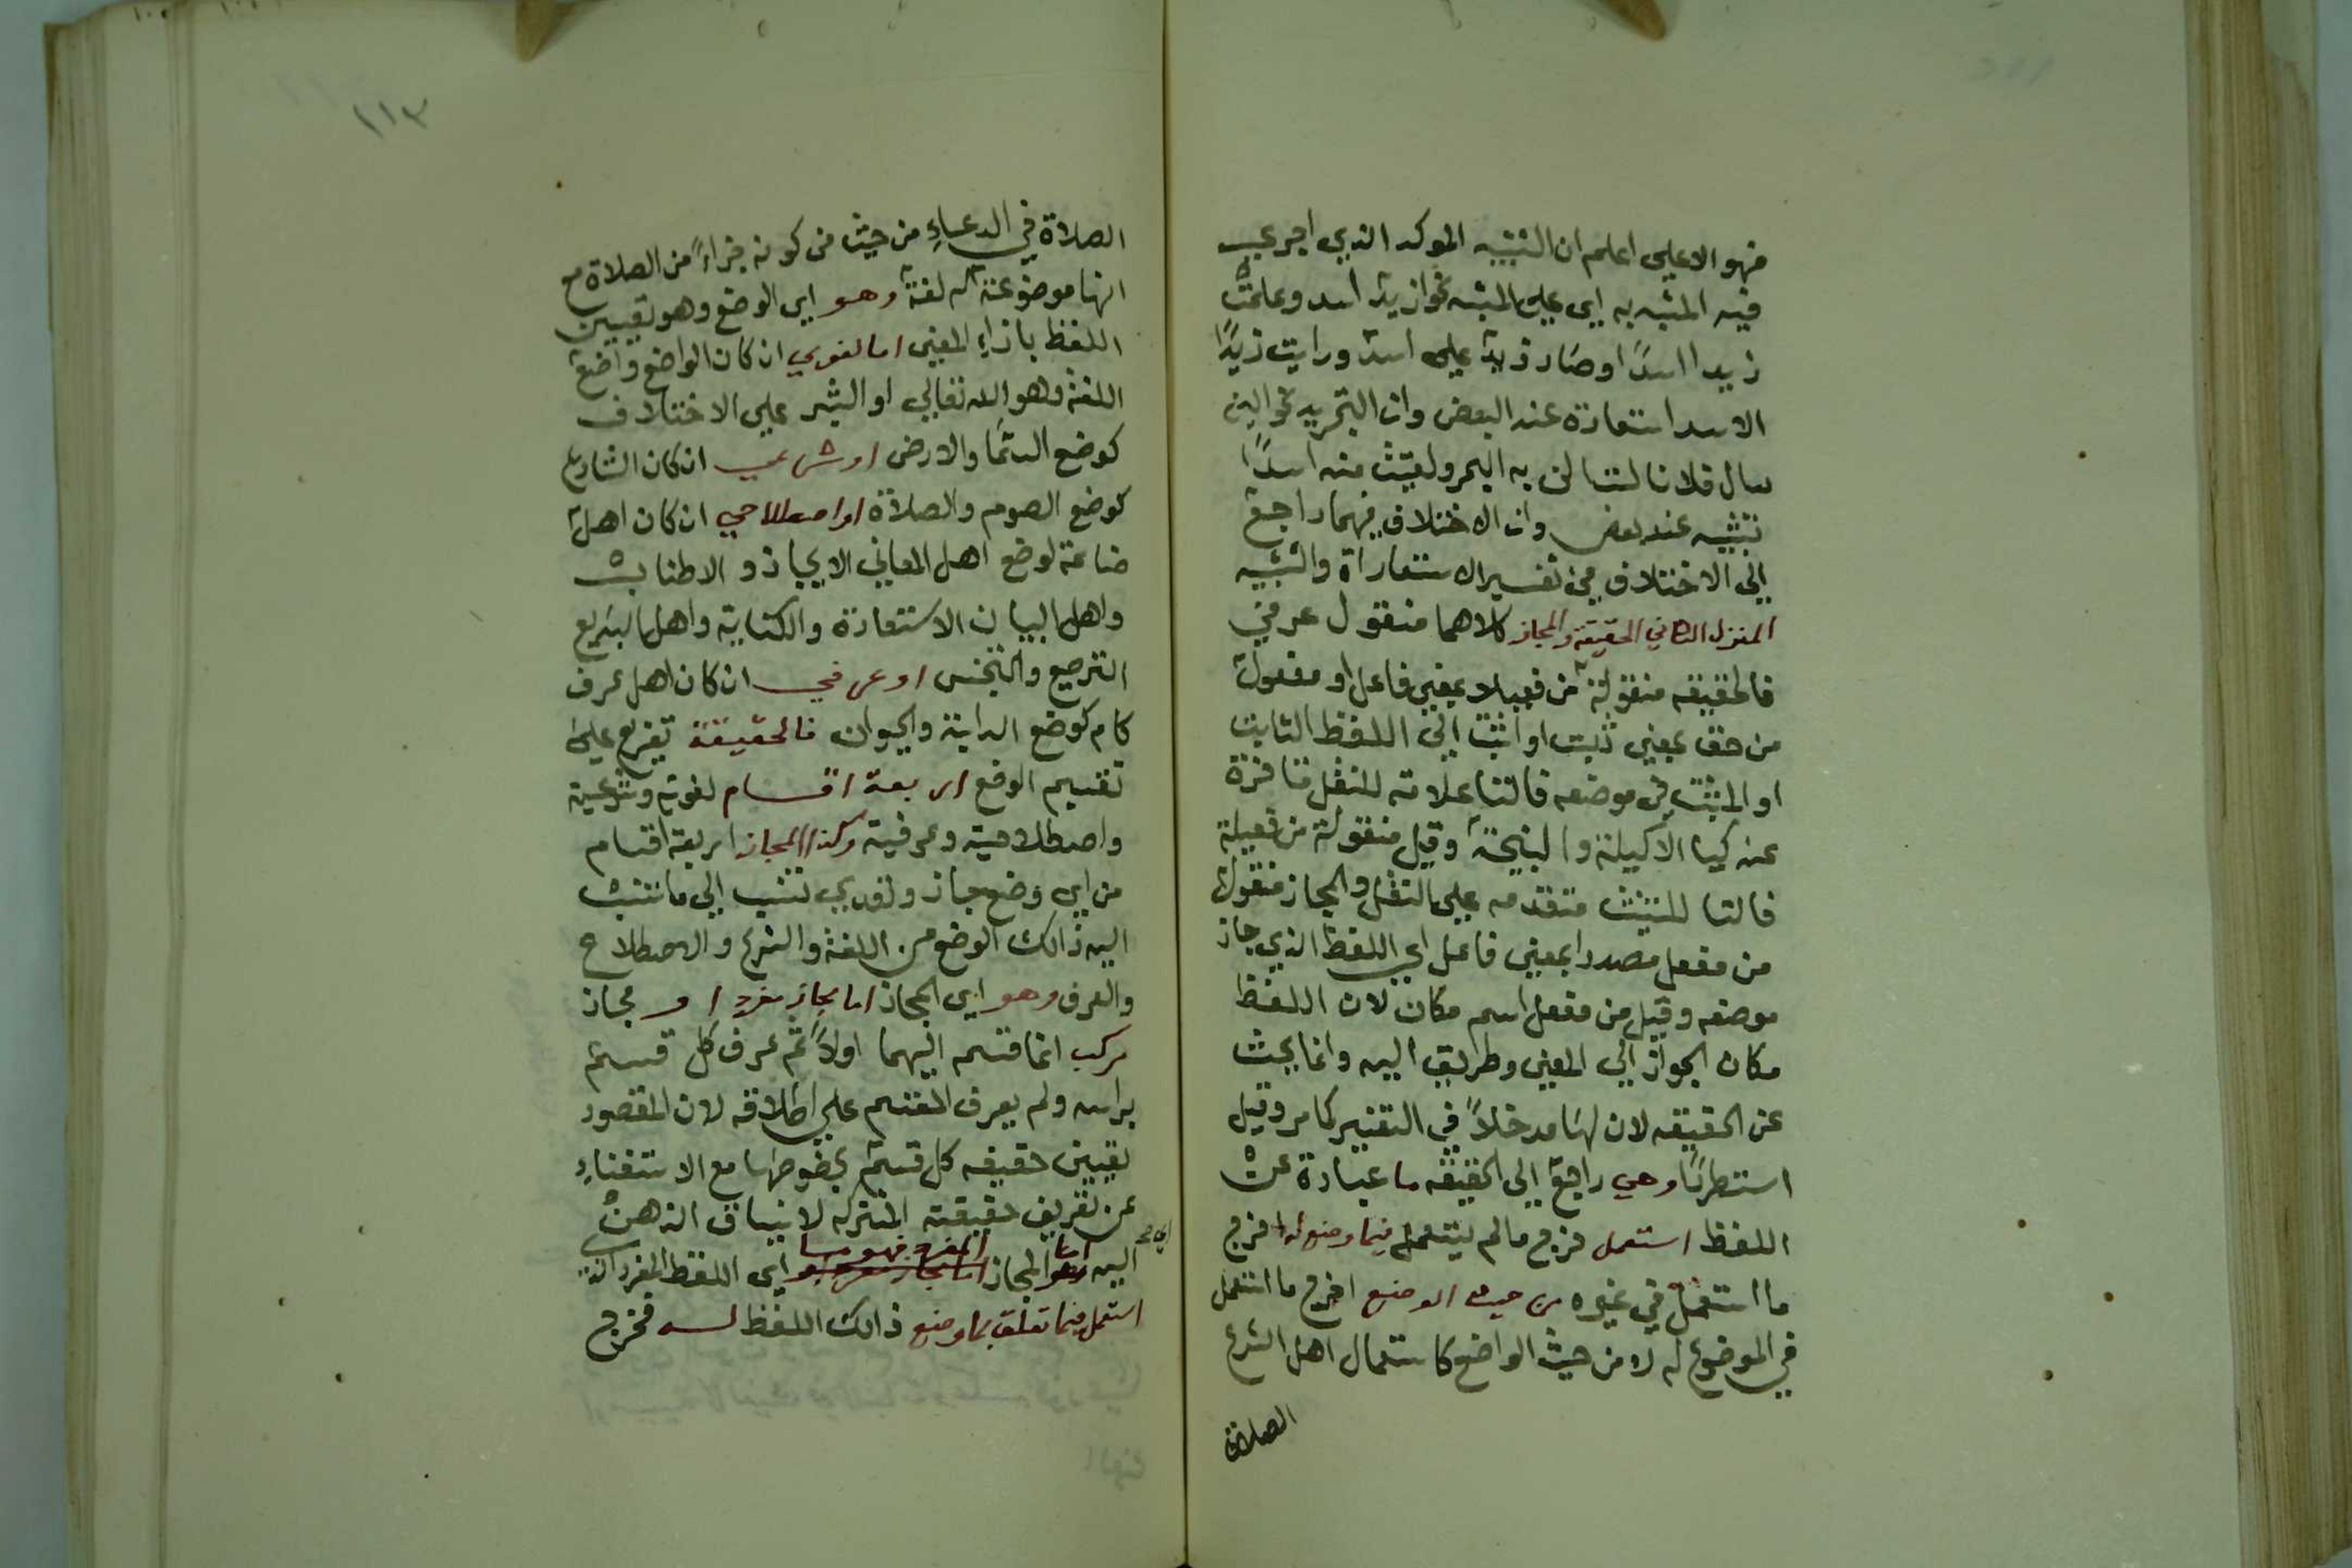 فهو الاعلي اعلم ان التشبيه الموكد الذي اجرعي
فيه المشبه به اي علي المشبه نحو ان زيد اسد وعلمت
زيدا اسدا وصار زيد علي اسد ورايت زيدا
الاسد استعارة عند البعض وان التجريد نحو لين
سال فلانا لتسالن به البحر ولقيت منه اسدا
تشبيه عند بعض وان الاختلاف فيهما راجع
الي الاختلاف في تفسير الاستعارة والتشبيه
المنزل الثاني الحقيقة والمجاز كلاهما منقول عرفي
فالحقيقه منقولة من فعيلا بمعني فاعل او مفعول
من حق بمعني ثبت او اثبت الي اللفظ الثابت
او المثبت في موضعه فالتا علامة للنقل
عند كيا الاكيلة والنطيحة وقيل منقولة من فعيلة
فالتا للتانيث متقدمه علي النقل والمجاز منقولة
من مفعل مصدرا بمعني فاعل اي اللفظ الذي جاز
موضعه وقيل من مفعل اسم مكان لان اللفظ
مكان الجواز الي المعني وطريق اليه وانما يبحث
عن الحقيقه لان لها مدخلا في التفسير كما مر وقيل
استطرادا وهي راجع الي الحقيقه ما عبارة عن
اللفظ استعمل خرج ما لم يستعمل فيما وضع له اخرج
ما استعمل في غيره من حيث الوضع اخرج ما استعمل
في الموضوع له لا من حيث الواضع كاستعمال اهل الشرع
الصلاة
١١٣
الصلاة في الدعاء من حيث من كونه جزاء من الصلاة مع
انها موضوعة له لغة وهو اي الوضع وهو تعيين
اللفظ بازاء المعني اما لغوي ان كان الواضع واضع
اللغة وهو الله تعالي او البشر علي الاختلاف
كوضع السما والارض او شرعي ان كان الشارع
كوضع الصوم والصلاة او اصطلاحي ان كان اهل
صناعة لوضع اهل المعاني الايجاز والاطناب
واهل البيان الاستعارة والكناية واهل البديع
الترصيع والتجنس او عرفي ان كان اهل عرف
كام كوضع الدابة والحيوان فالحقيقة تفرع علي
تقسيم الوضع اربعة اقسام لغوية وشرعية
واصطلاحية وعرفية وكذا المجاز اربعة اقسام
من اي وضع جاز ولقدي تنسب الي ما تنسب
اليه ذالك الوضع من اللغة والشرع والاصطلاح
والعرف وهو اي المجاز اما مجاز مفرد او مجاز
مركب انما قسمه اليهما اولا ثم عرف كل قسم
براسه ولم يعرف المقسم علي اطلاقه لان المقصود
تعيين حقيقه كل قسم بخصوصها مع الاستغناء
عن تعريف حقيقته المشتركه لا نسياق الذهن
اليه اما المجاز المفرد فهو ما اي اللفظ المفرد الذي
استعمل فيما تعلق بما وضع ذالك اللفظ له فخرج